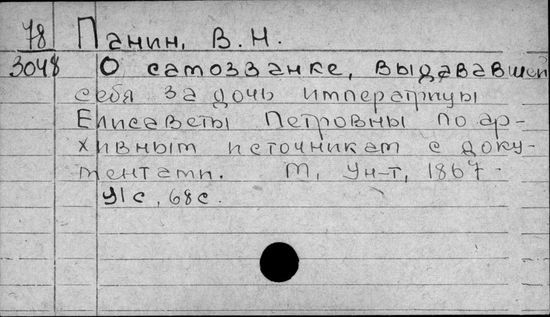 78 Панин, В.Н.
3048 О самозванке, выдававшей
себя за дочь императрицы
Елисаветы Петровны по ар-
хивным источникам с доку-
ментами. М, Ун-т, 1867.
68 с.